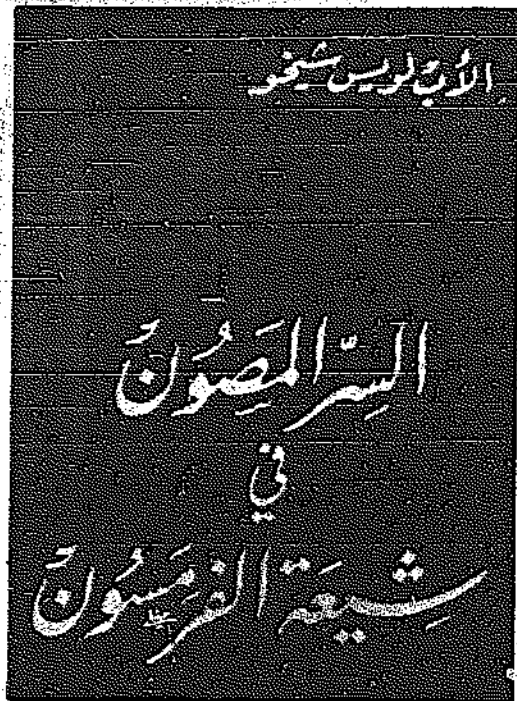 الأب لويس شيخو
السِّر المَصُون
في
شِيعَة الفَرمَسُون